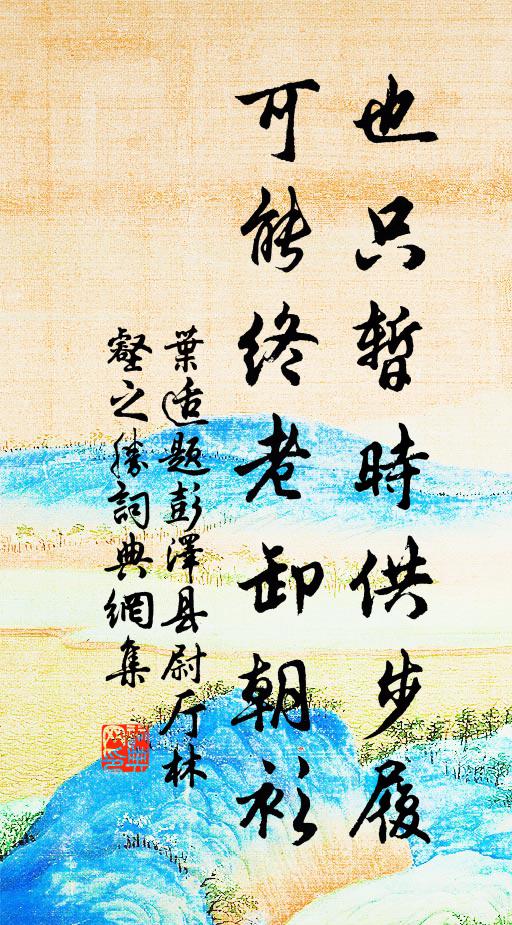 也只暫時供步履
可能終老卸朝衫
葉适题彭澤县尉厅林
壑之勝詞典網集